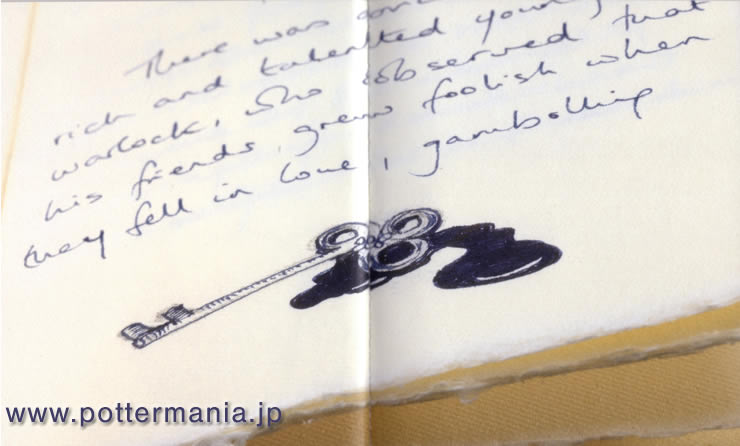 There was once
rich and talented young
warlock, who observed that
his friends grew foolish when
they fell in love, gambolling
www.pottermania.jp